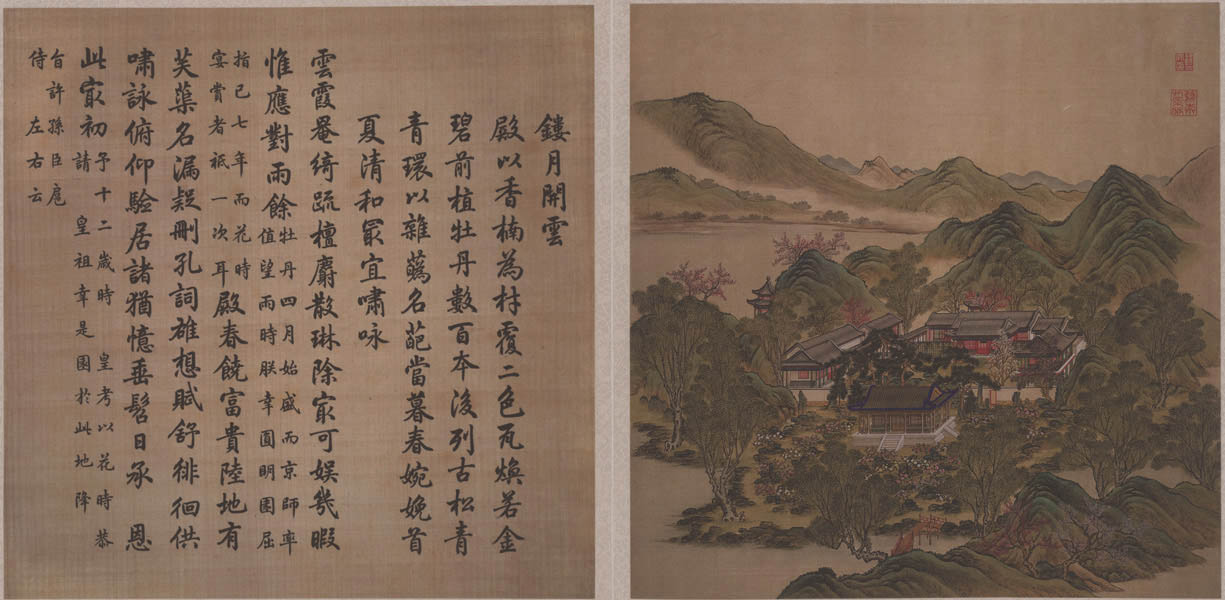 鏤月開雲
殿以香楠為材覆二色瓦煥若金
碧前植牡丹數百本後列古松青
青環以雜蘤名葩當暮春婉娩首
夏清和冣宜嘯咏
雲霞罨綺疏檀麝散琳除冣可娛幾暇
惟應對雨餘
牡丹四月始盛而京師率
值望雨時朕幸圓明園屈
指已七年而花時
宴賞者祇一次耳
殿春饒富貴陸地有
芙蕖名漏疑刪孔詞雄想賦舒徘徊供
嘯詠俯仰驗居諸猶憶垂髫日承 恩
此冣初
予十二歲時 皇考以花時恭
請 皇祖幸是園於此地降
旨許孫臣扈
侍左右云